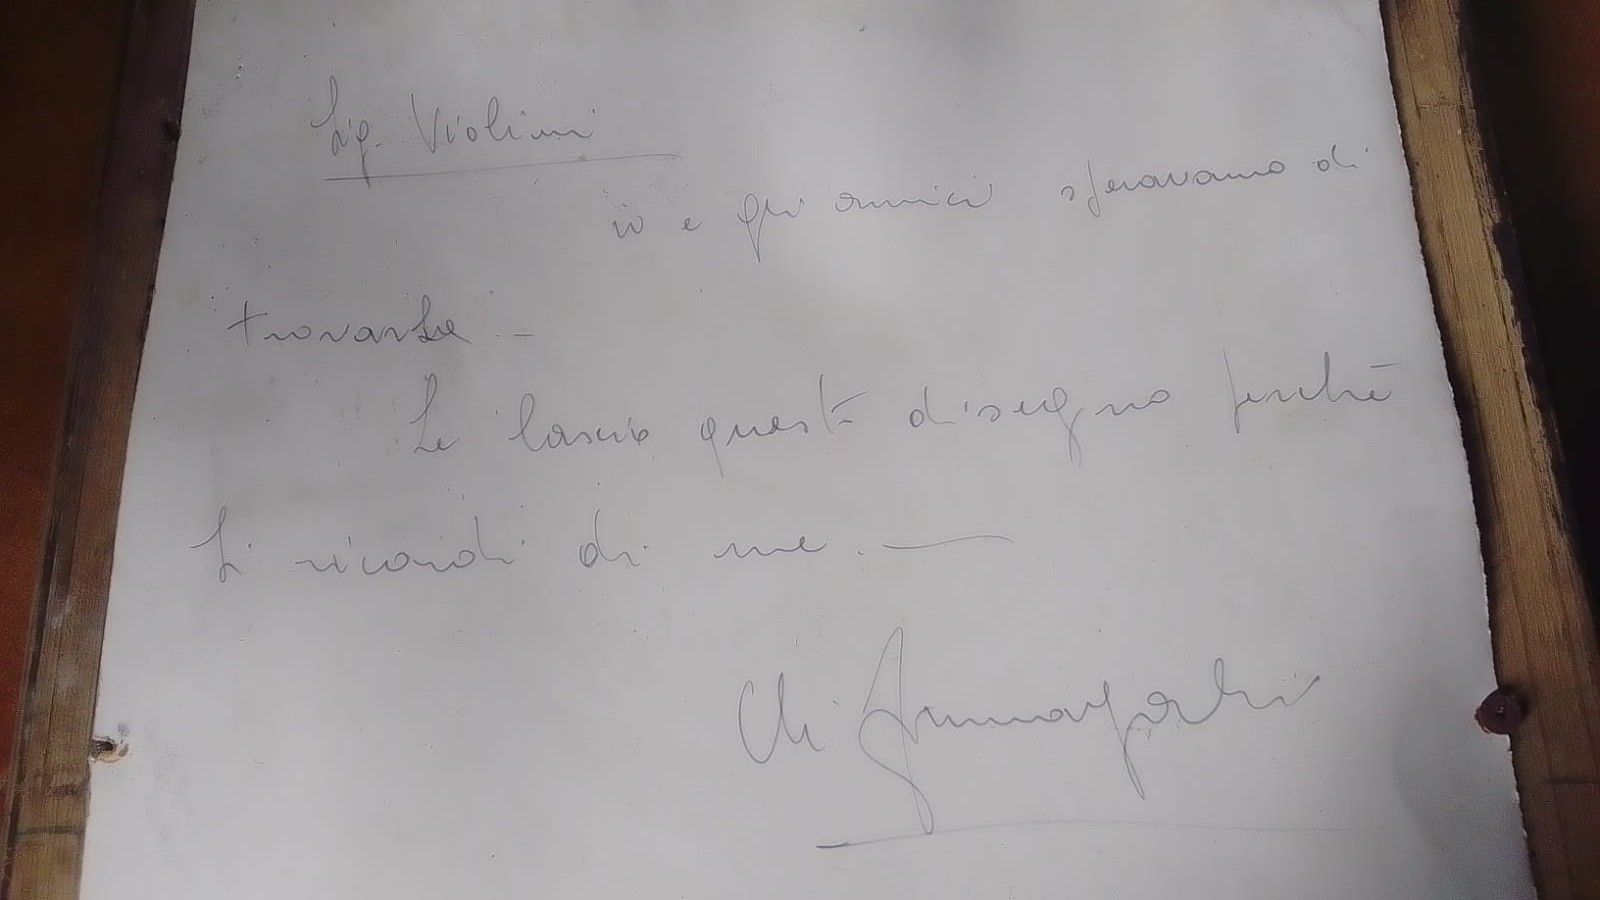 Sig. Violini
io e gli amici speravamo di
trovarla -
Le lascio questo disegno perché
Si ricordi di me. —